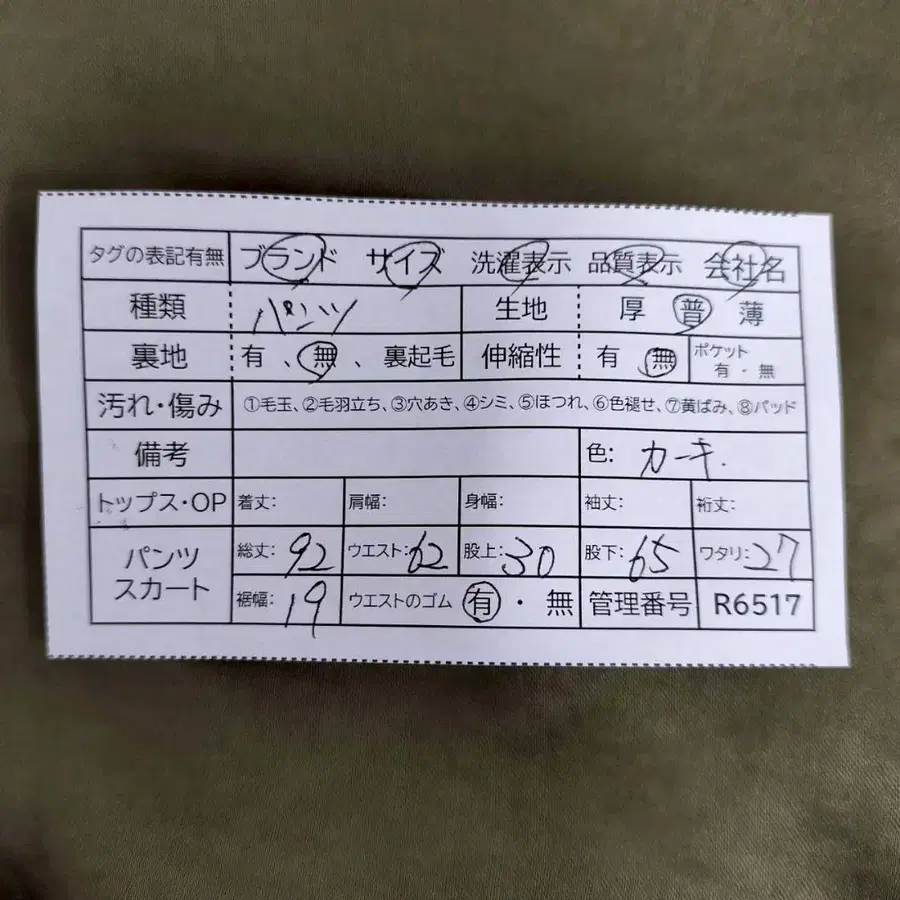 タグの表記有無 ブランド サイズ 洗濯表示 品質表示 会社名
種類 パンツ 生地 厚 普 薄
裏地 有、無、裏起毛 伸縮性 有 無 ポケット 有・無
汚れ・傷み ①毛玉、②毛羽立ち、③穴あき、④シミ、⑤ほつれ、⑥色褪せ、⑦黄ばみ、⑧パッド
備考 色: カーキ.
トップス・OP 着丈: 肩幅: 身幅: 袖丈: 裄丈:
パンツ スカート 総丈: 92 ウエスト: 62 股上: 30 股下: 65 ワタリ: 27
裾幅: 19 ウエストのゴム 有・無 管理番号 R6517